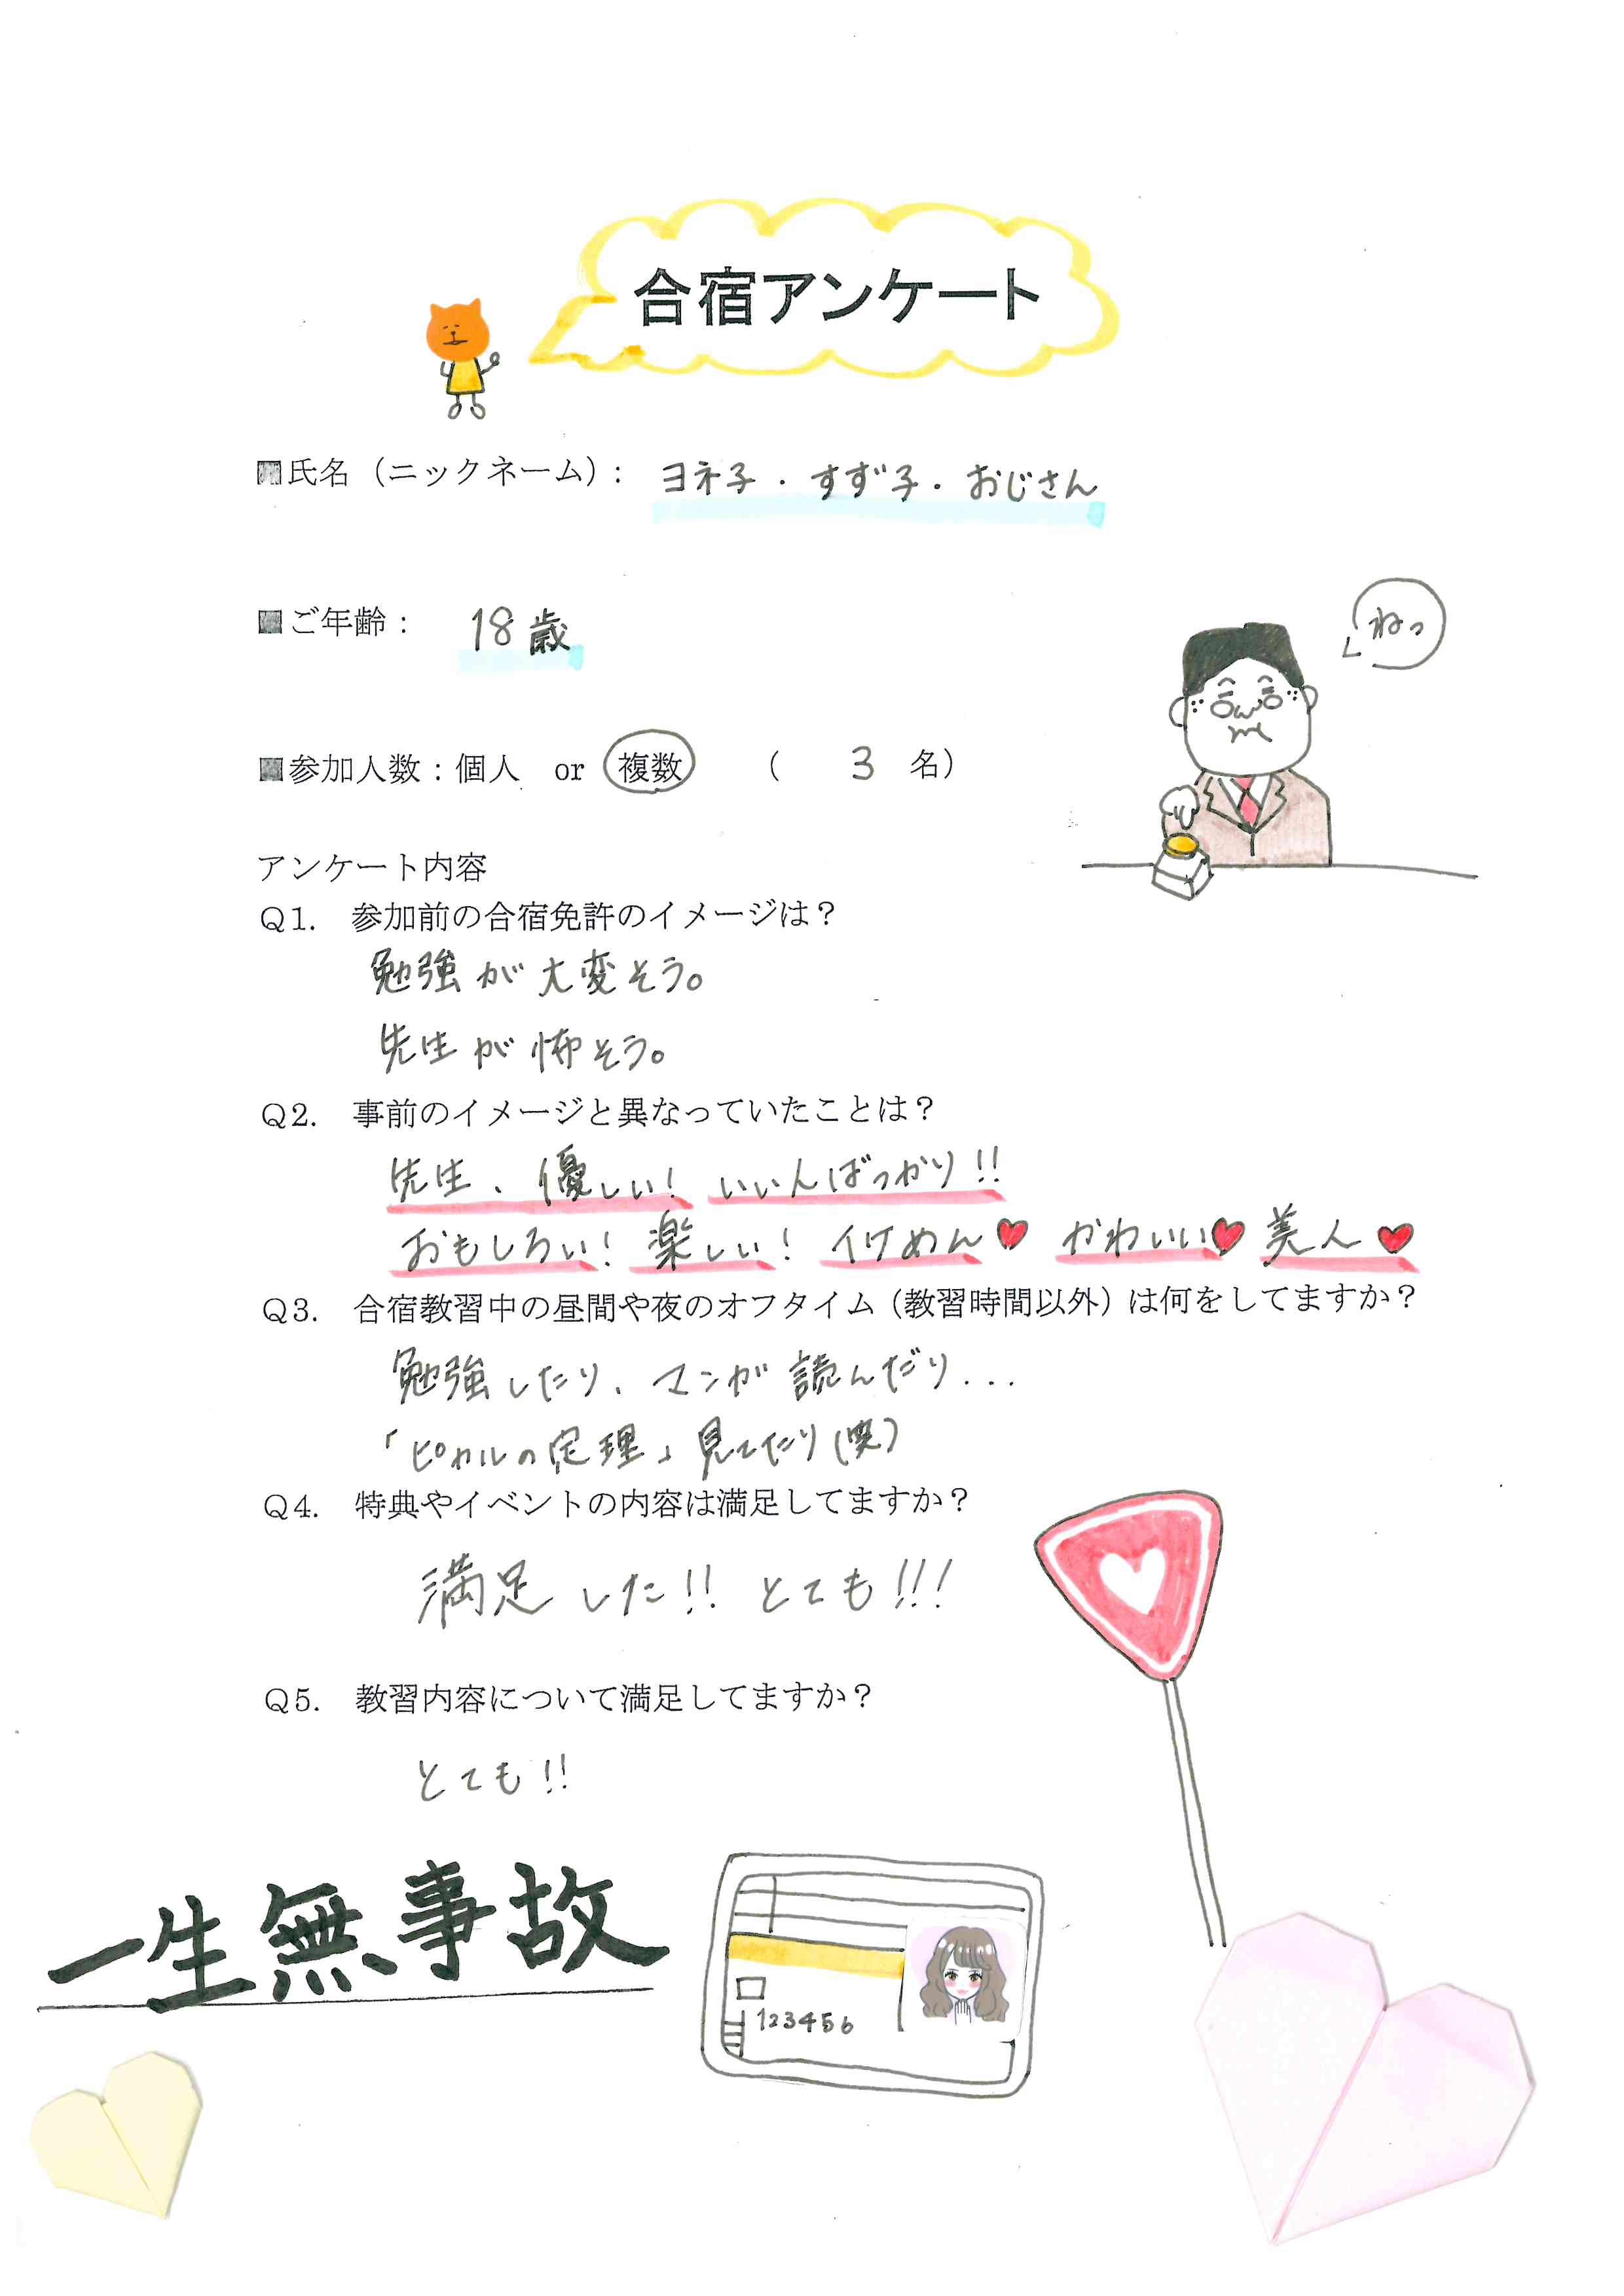 合宿アンケート
■氏名（ニックネーム）： ヨネ子・すず子・おじさん
■ご年齢： 18歳
ねっ
■参加人数：個人 or 複数 （ 3 名）
アンケート内容
Q1. 参加前の合宿免許のイメージは？
勉強が大変そう。
先生が怖そう。
Q2. 事前のイメージと異なっていたことは？
先生、優しい！いい人ばっかり!!
おもしろい！楽しい！イケめん♥ かわいい♥ 美人♥
Q3. 合宿教習中の昼間や夜のオフタイム（教習時間以外）は何をしてますか？
勉強したり、マンガ読んだり...
「ピカルの定理」見てたり(笑)
Q4. 特典やイベントの内容は満足してますか？
満足した!! とても!!!
Q5. 教習内容について満足してますか？
とても!!
一生無事故
123456